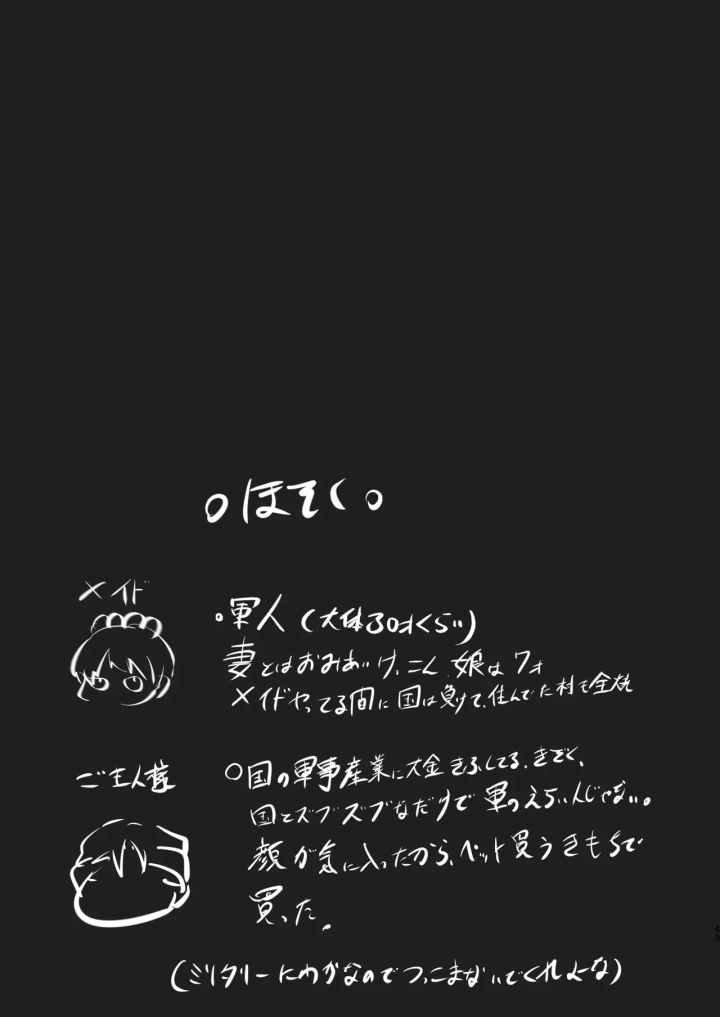 ○ほそく○
メイド
○軍人(大体30才くらい)
妻とはおみあいけっこん 娘は7才
メイドやってる間に国は負けて、住んでた村も全焼
ご主人様
○国の軍事産業に大金をふしてる、きぞく、
国とズブズブなだけで軍のえらい人じゃない。
顔が気に入ったから、ペット買うきもちで
買った。
(ミリタリーにわかなのでつっこまないでくれよな)